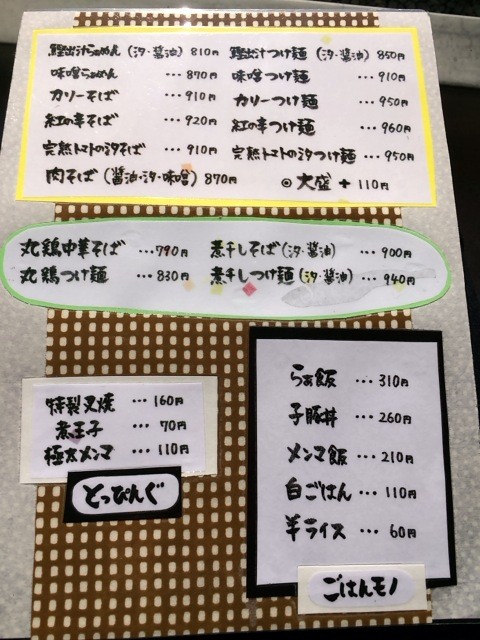 鰹出汁らぁめん（汐・醤油）810円
味噌らぁめん …870円
カリーそば …910円
紅の辛そば …920円
完熟トマトの汐そば …910円
肉そば（醤油・汐・味噌）870円
鰹出汁つけ麺（汐・醤油）850円
味噌つけ麺 …910円
カリーつけ麺 …950円
紅の辛つけ麺 …960円
完熟トマトの汐つけ麺 …950円
◎ 大盛 + 110円
丸鶏中華そば …790円
丸鶏つけ麺 …830円
煮干しそば（汐・醤油） …900円
煮干しつけ麺（汐・醤油） …940円
特製叉焼 …160円
煮玉子 …70円
極太メンマ …110円
とっぴんぐ
らぁ飯 …310円
子豚丼 …260円
メンマ飯 …210円
白ごはん …110円
半ライス …60円
ごはんモノ